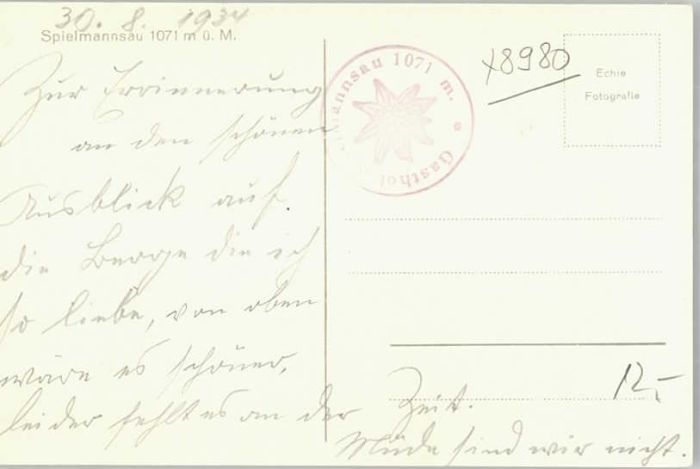 30. 8. 1934
Spielmannsau 1071 m ü. M.
Zur Erinnerung
an den schönen
Ausblick auf
die Berge die ich
so liebe, von oben
wäre es schöner,
leider fehlt es an der Zeit.
Müde sind wir nicht.
mannsau 1071 m. Gasthof
x8980
Echte
Fotografie
12,-